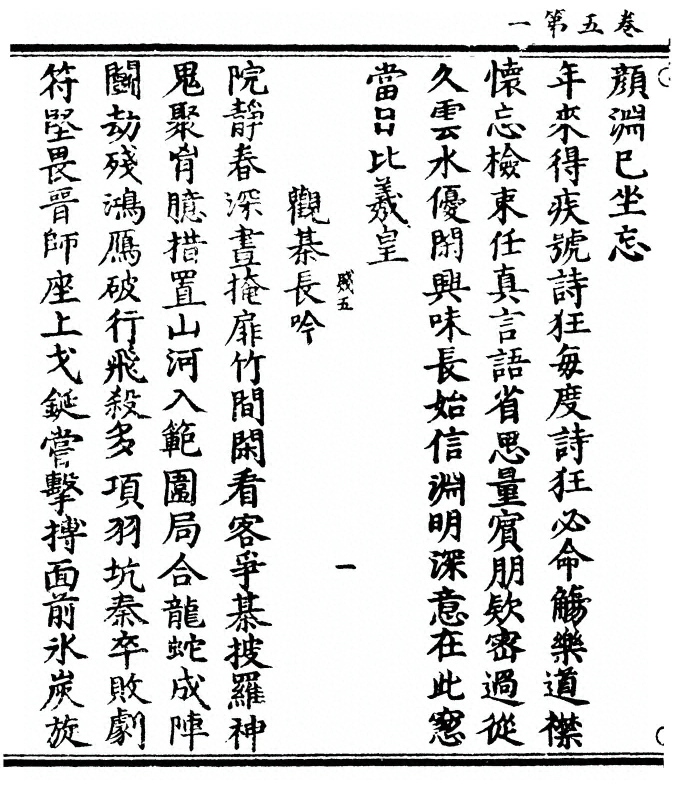 卷五第一
顏淵已坐忘
年來得疾號詩狂每度詩狂必命觴樂道襟
懷忘檢束任真言語省思量賓朋欵密過從
久雲水優閑興味長始信淵明深意在此窓
當日比羲皇
觀棊長吟
院靜春深晝掩扉竹間閑看客爭棊披羅神
鬼聚胷臆措置山河入範圍局合龍蛇成陣
鬬劫殘鴻鴈破行飛殺多項羽坑秦卒敗劇
符堅畏晉師座上戈鋋嘗擊搏面前氷炭旋
一